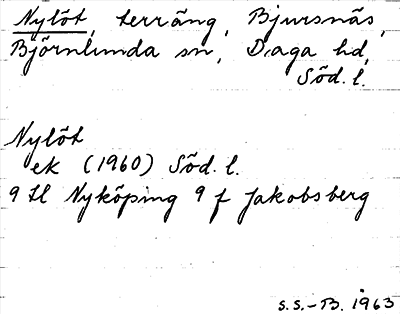 Nylöt, terräng, Bjursnäs,
Björnlunda sn, Daga hd,
Söd. l.
Nylöt
ek (1960) Söd. l.
9 H Nyköping 9 f Jakobsberg
S.S.-B. 1963